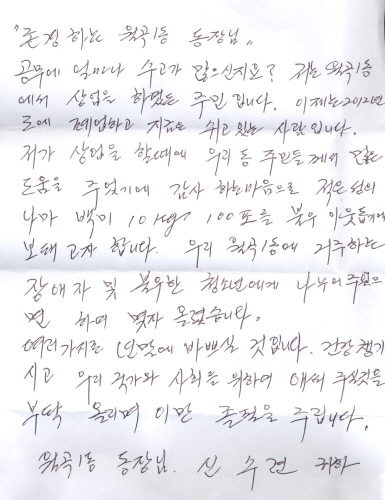 "존경하는 월곡1동 동장님"
공무에 얼마나 수고가 많으신지요? 저는 월곡1동
에서 상업을 하였든 주민입니다. 이제는 2012년
로에 폐업하고 지금은 쉬고 있는 사람입니다.
저가 상업을 할때에 우리동 주민들께서 많은
도움을 주었기에 감사하는마음으로 적은 성의
나마 백미 10kg 100포를 불우 이웃돕기에
보태고자 합니다. 우리 월곡1동에 거주하는
장애자 및 불우한 청소년에게 나누어 주었으
면 하여 몇자 올렸습니다.
여러가지로 년말에 바쁘실 것입니다. 건강 챙기
시고 우리 국가와 사회를 위하여 애써 주실것을
부탁 올리며 이만 졸필을 주립니다.
월곡1동 동장님. 신 수연 귀하